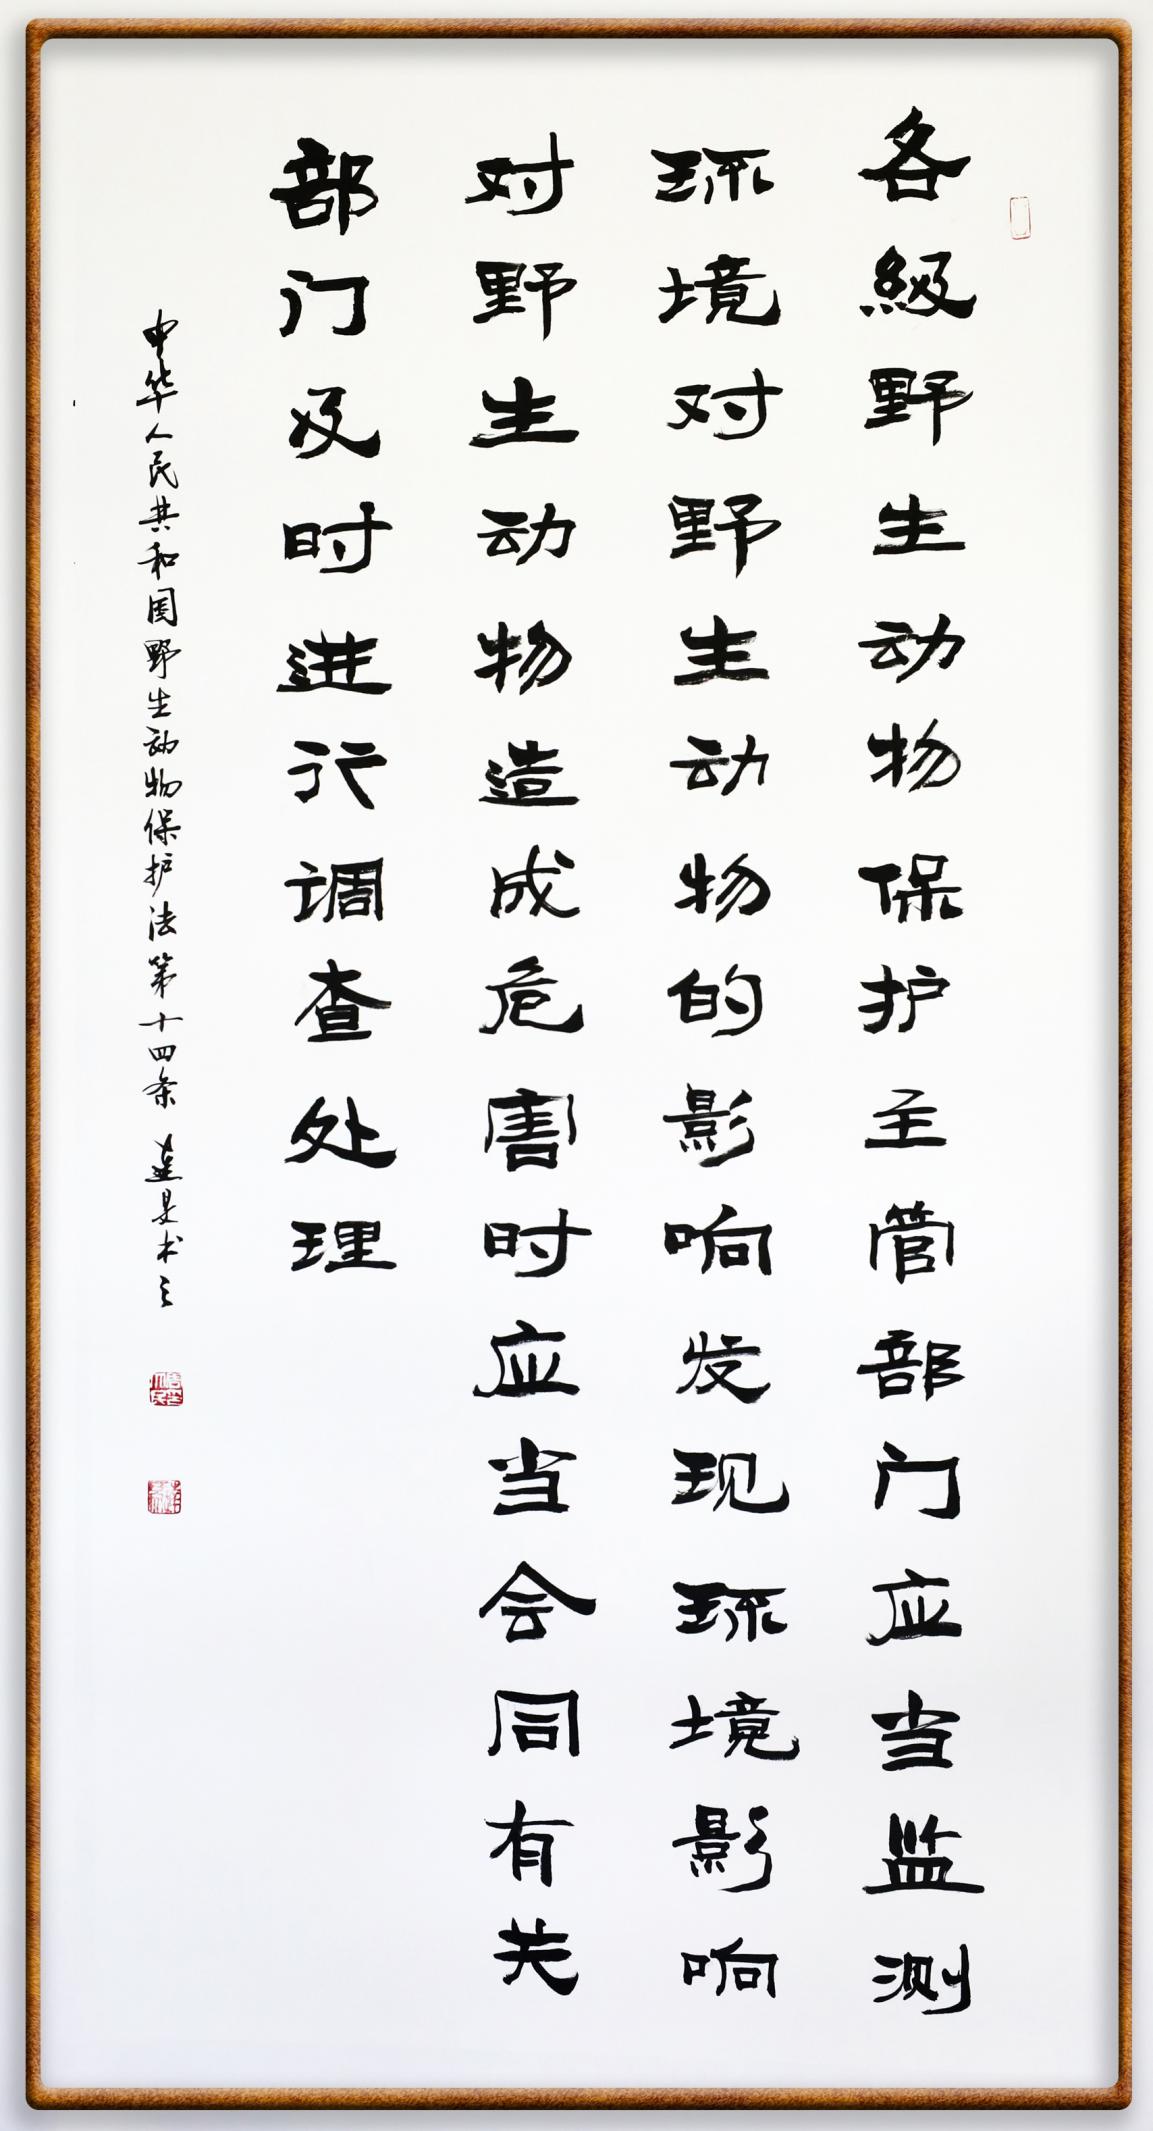 各级野生动物保护主管部门应当监测
环境对野生动物的影响发现环境影响
对野生动物造成危害时应当会同有关
部门及时进行调查处理
中华人民共和国野生动物保护法第十四条